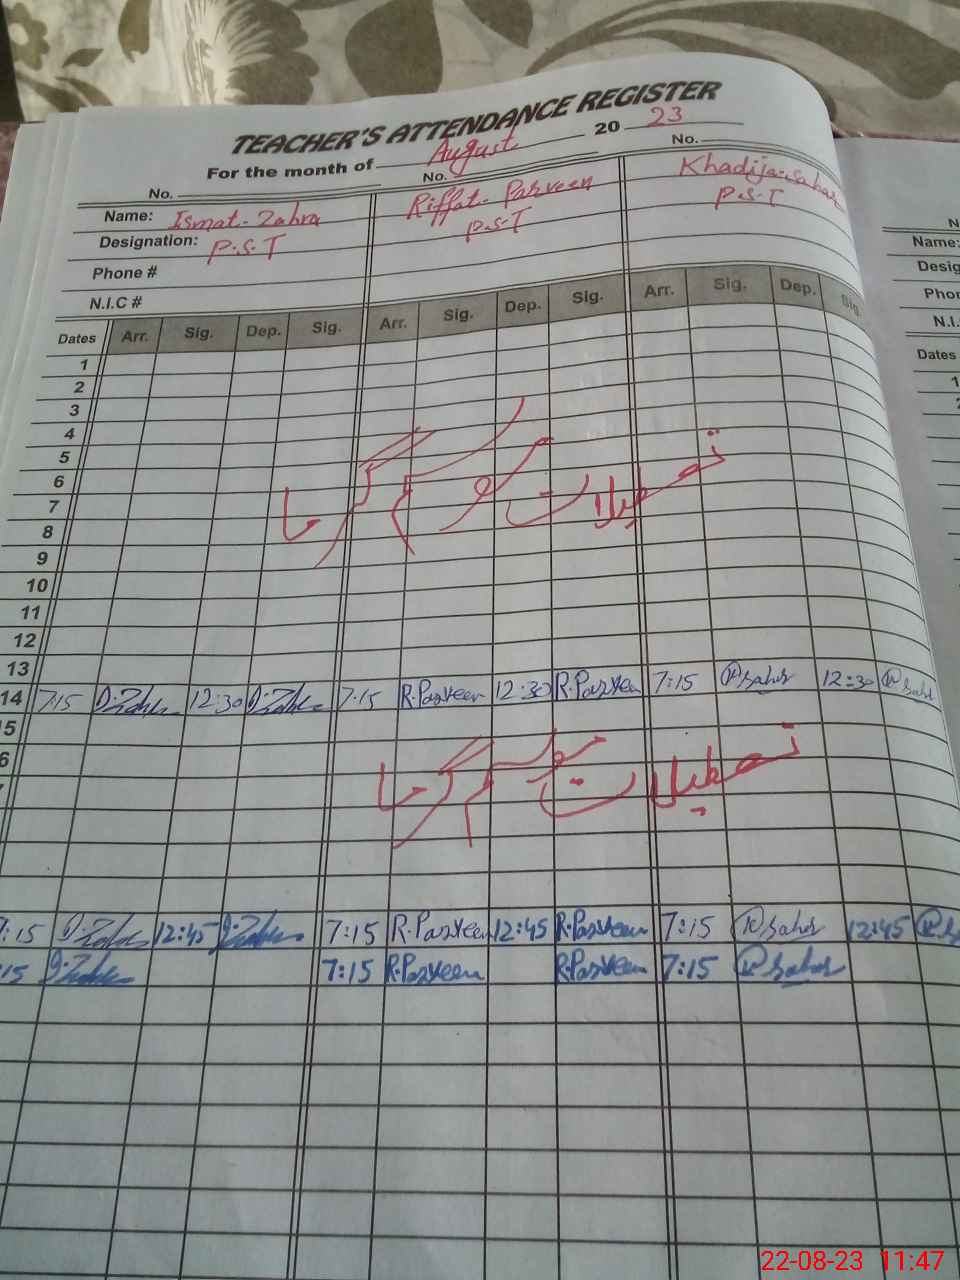 TEACHER'S ATTENDANCE REGISTER
For the month of August 2023
No. No. No.
Name: Ismat-Zahra Riffat-Parveen Khadija-sahar
Designation: P.S.T P.S.T P.S.T
Phone #
N.I.C #
Dates Arr. Sig. Dep. Sig. Arr. Sig. Dep. Sig. Arr. Sig. Dep. Sig.
1
2
3
4
5
6
تعطیلات موسم گرما
7
8
9
10
11
12
13
14 7:15 I.Zahra 12:30 I.Zahra 7:15 R.Parveen 12:30 R.Parveen 7:15 K.sahar 12:30 K.sahar
15
6
تعطیلات موسم گرما
7:15 I.Zahra 12:45 I.Zahra 7:15 R.Parveen 12:45 R.Parveen 7:15 K.sahar 12:45
:15 I.Zahra 7:15 R.Parveen R.Parveen 7:15 K.sahar
Name:
Phon
N.I.
Dates
1
2
22-08-23 11:47